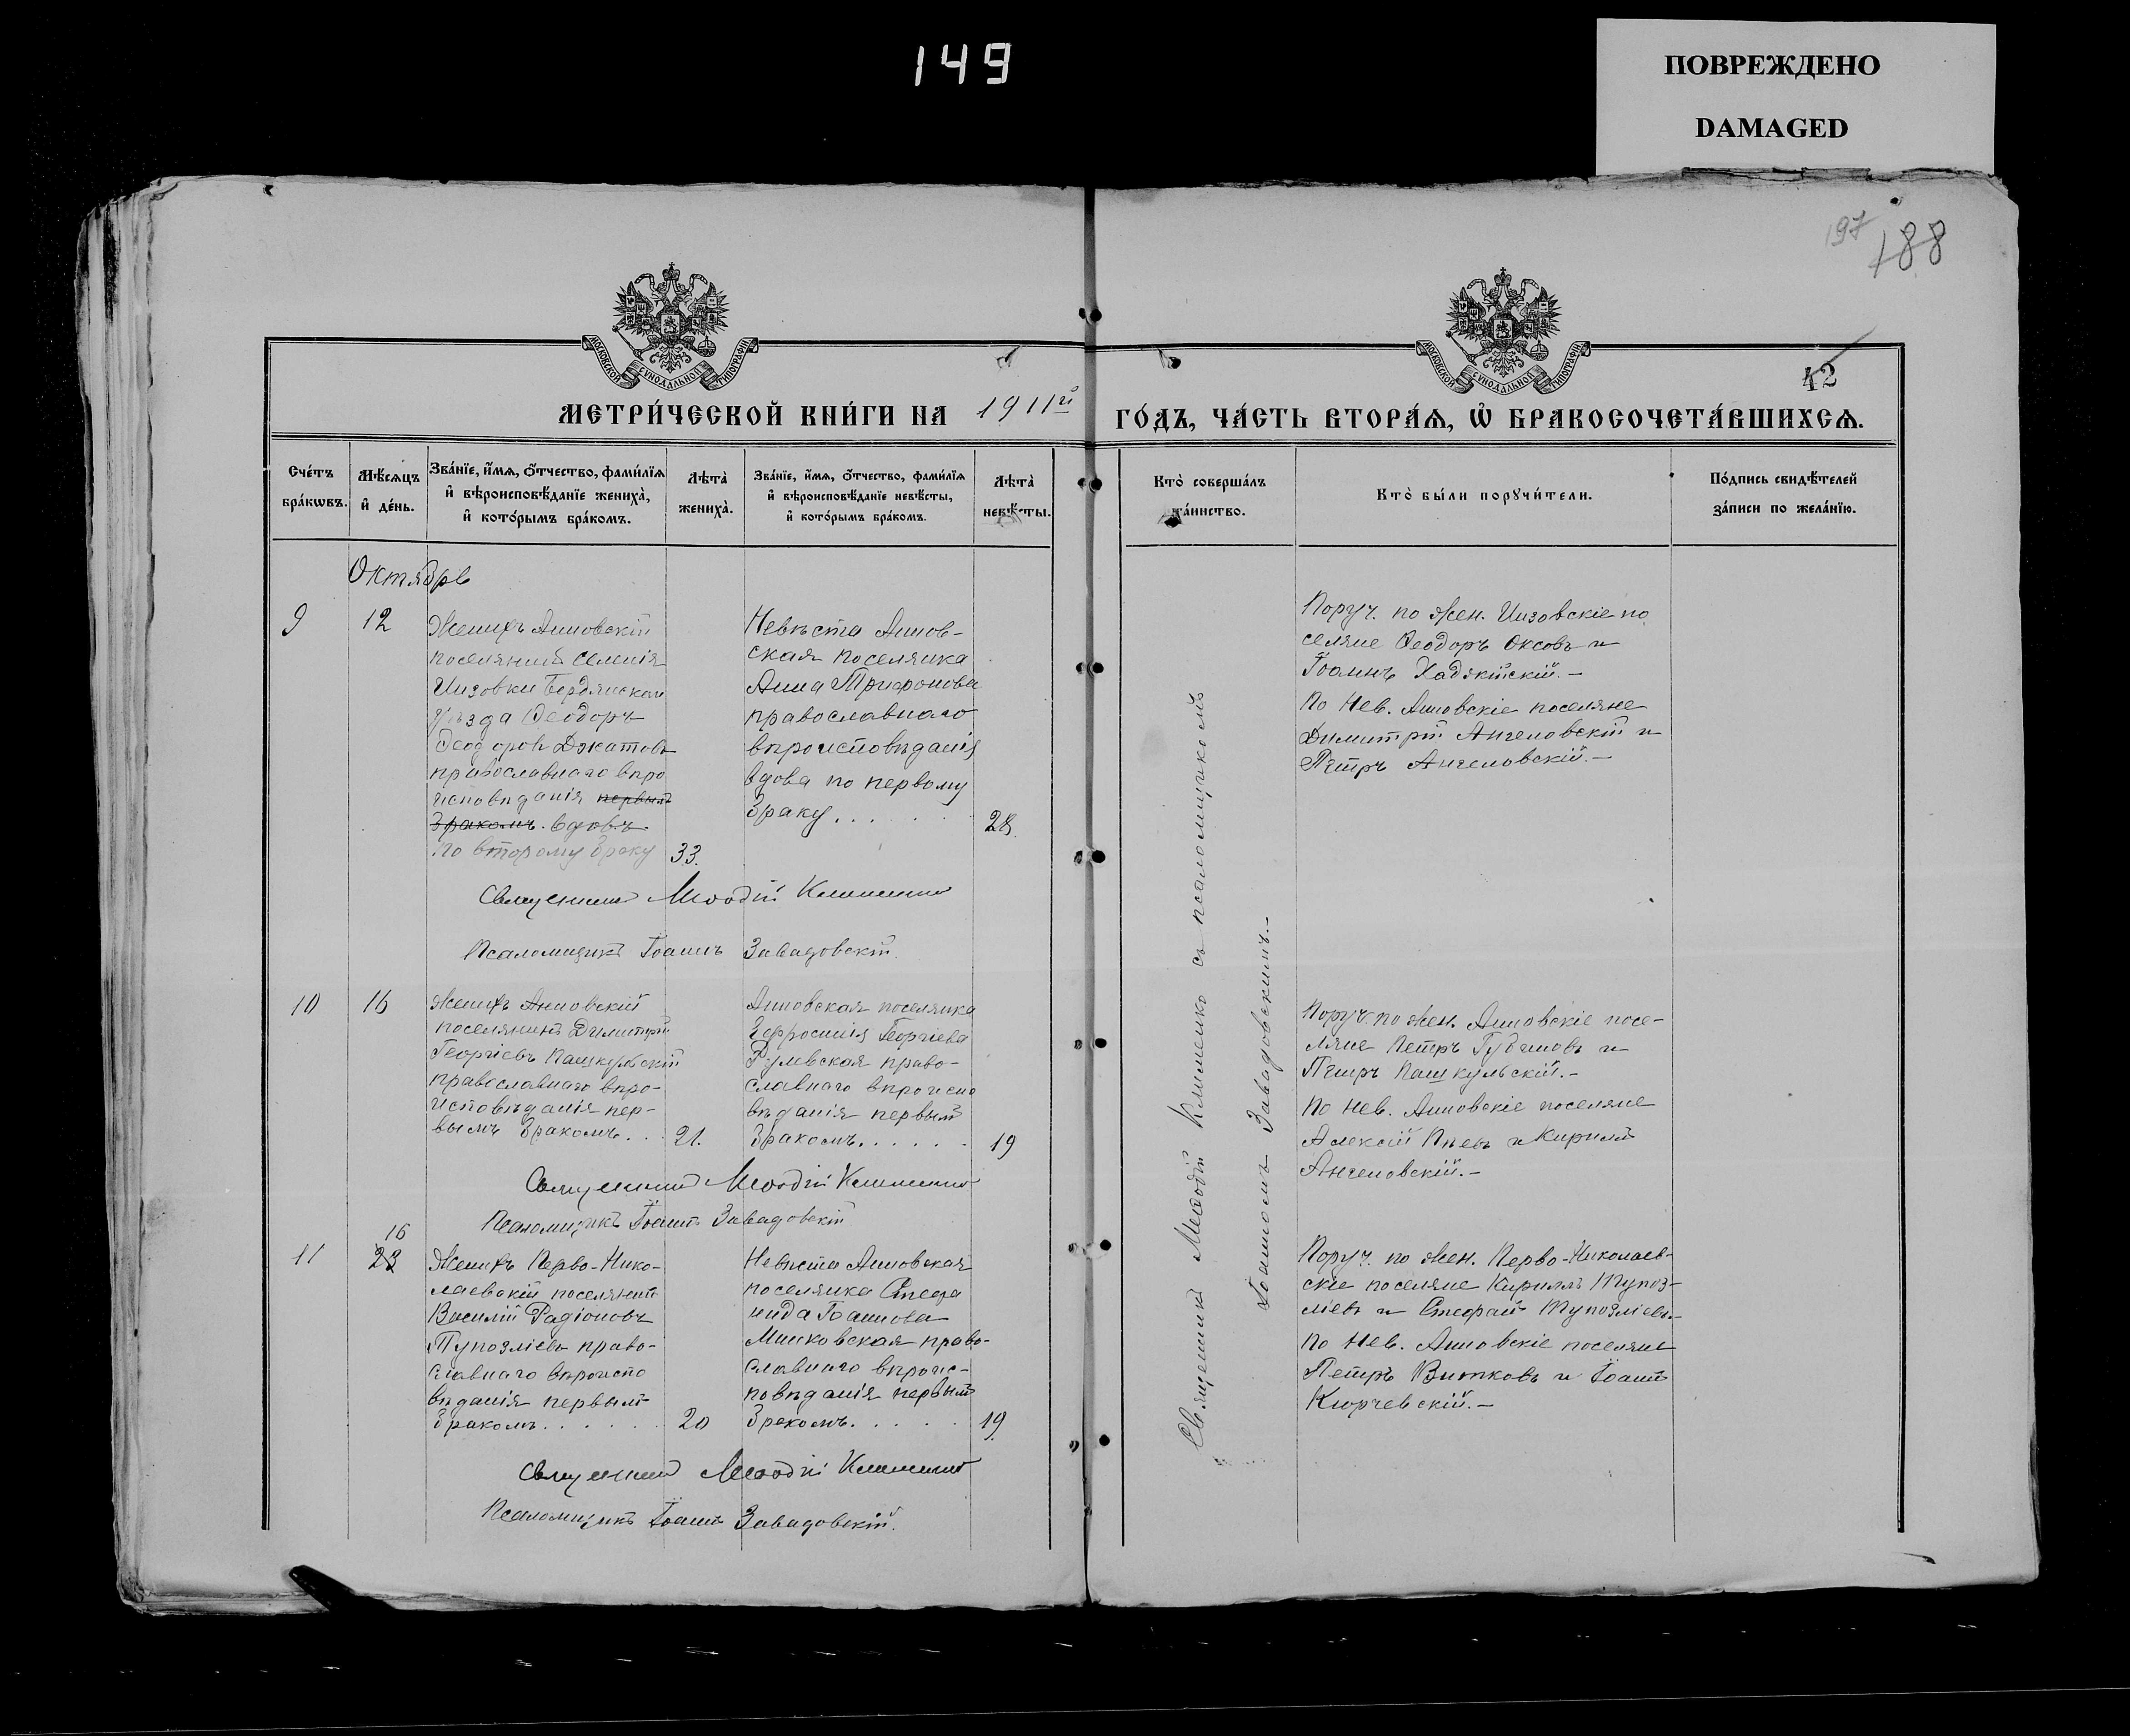 149
ПОВРЕЖДЕНО
DAMAGED
197
188
МОСКОВСКОЙ СѴНОДАЛЬНОЙ ТИПОГРАФІИ
МОСКОВСКОЙ СѴНОДАЛЬНОЙ ТИПОГРАФІИ
42
МЕТРИ́ЧЕСКОЙ КНИ́ГИ НА 1911й ГО́ДЪ, ЧА́СТЬ ВТОРА́Ѧ, Ѡ҆ БРАКОСОЧЕТА́ВШИХСѦ.
Сче́тъ бра́кѡвъ.
Мѣ́сѧцъ и҆ де́нь.
Зва́нїе, и҆́мѧ, о҆́тчество, фами́лїѧ
и҆ вѣроисповѣ́данїе жениха̀,
и҆ кото́рымъ бра́комъ.
Лѣ́та̀ жениха̀.
Зва́нїе, и҆́мѧ, о҆́тчество, фами́лїѧ
и҆ вѣроисповѣ́данїе невѣ́сты,
и҆ кото́рымъ бра́комъ.
Лѣ́та̀ невѣ́сты.
Кто̀ соверша́лъ та́инство.
Кто̀ бы́ли порꙋчи́тели.
По́дпись свидѣ́телей
за́писи по жела́нїю.
Октябрь
9
12
Женихъ Анновскій
поселянинъ селенія
Инзовки Бердянскаго
уѣзда Ѳеодоръ
Ѳеодоровъ Джатовъ
православнаго вѣро
исповѣданія первымъ
бракомъ. вдовъ
по второму браку
33.
Невѣста Аннов-
ская поселянка
Анна Трифонова
православнаго
вѣроисповѣданія
вдова по первому
браку . . .
28
Поруч. по жен. Инзовскіе по
селяне Ѳеодоръ Оксовъ и
Іоаннъ Хаджійскій. –
По Нев. Анновскіе поселяне
Димитрій Ангеловскій и
Петръ Ангеловскій. –
Священникъ Меѳодій Клименко
Псаломщикъ Іоаннъ Завадовскій.
10
16
Женихъ Анновскій
поселянинъ Димитрій
Георгіевъ Пашкульскій
православнаго вѣро-
исповѣданія пер-
вымъ бракомъ . .
21.
Анновская поселянка
Ефросинія Георгіева
православнаго вѣроиспо
вѣданія первымъ
бракомъ . . . . .
19
Поруч. по жен. Анновскіе посе-
ляне Петръ и
Петръ Пашкульскій. –
По нев. Анновскіе поселяне
Алексій и Кириллъ
Ангеловскій. –
Священникъ Меѳодій Клименко
Псаломщикъ Іоаннъ Завадовскій
11
16
23
Женихъ Перво-Нико-
лаевскій поселянинъ
Василій Радіоновъ
Тупозліевъ право-
славнаго вѣроиспо
вѣданія первымъ
бракомъ . . . . .
20
Невѣста Анновская
поселянка Стефа
нида Іоаннова
Минковская право-
славнаго вѣроис-
повѣданія первымъ
бракомъ. . . . .
19.
Поруч. по жен. Перво-Николаев-
скіе поселяне Кириллъ Тупоз-
ліевъ и Стефанъ Тупозліевъ. –
По Нев. Анновскіе поселяне
Петръ Витковъ и Іоаннъ
Кюрчевскій. –
Священникъ Меѳодій Клименко
Псаломщикъ Іоаннъ Завадовскій.
Священникъ Меѳодій Клименко съ псаломщикомъ
Іоанномъ Завадовскимъ. –